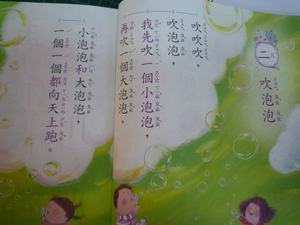 二
吹泡泡
吹吹吹，
吹泡泡，
我先吹一個小泡泡，
再吹一個大泡泡，
小泡泡和大泡泡，
一個一個都向天上跑。